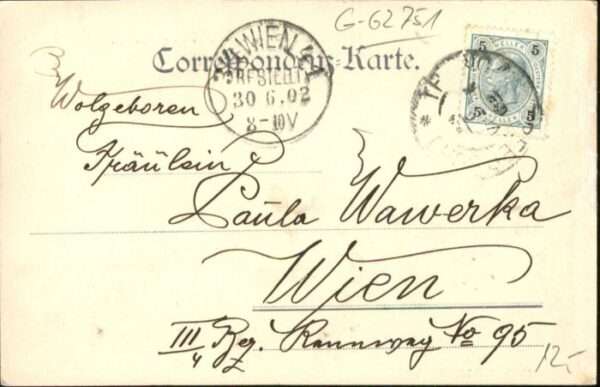 G-62751
Correspondenz-Karte.
WIEN
BESTELLT
30 6.02
8-10V
5 HELLER 5
5 HELLER 5
Wolgeboren
Fräulein
Paula Wawerka
Wien
III/4 Bez. Rennweg No 95
12.-